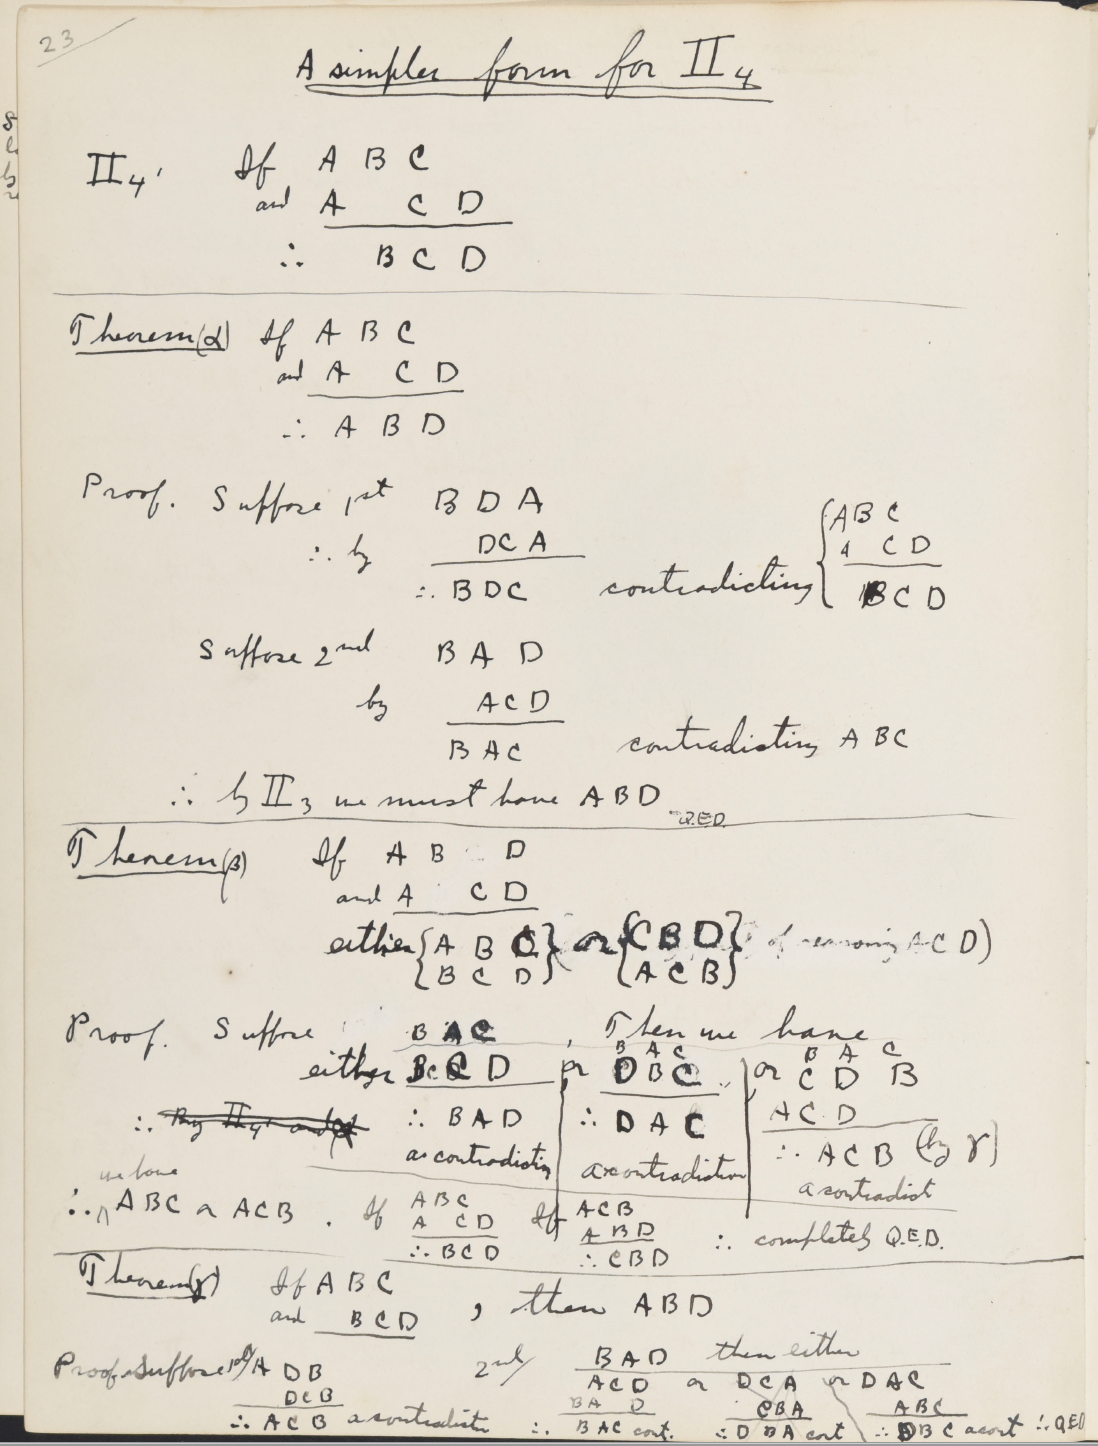 23
A simpler form for II4
II4' If A B C
and A C D
∴ B C D
Theorem (α) If A B C
and A C D
∴ A B D
Proof. Suppose 1st B D A
∴ by DCA
∴ BDC contradicting {ABC
A CD
BCD
Suppose 2nd B A D
by ACD
BAC contradicting ABC
∴ by II3 we must have ABD Q.E.D.
Theorem (β) If A B D
and A C D
either {A B C} or {C B D} of reasoning ACD)
{B C D} {A C B}
Proof. Suppose BAC, Then we have
either BCD or BAC DBC or BAC CDB
∴ By II4' and α ∴ BAD ∴ DAC ACD
a contradiction a contradiction ∴ ACB (by γ)
a contradict
we have
∴ ABC or ACB. If ABC If ACB
A CD ABD ∴ completely Q.E.D.
∴ BCD ∴ CBD
Theorem (γ) If ABC
and BCD, then ABD
Proof Suppose 1st/ A DB 2nd/ BAD then either
DCB ACD or DCA or DAC
∴ ACB a contradict BA D CBA ABC
∴ BAC cont. ∴ DBA cont ∴ DBC a cont ∴ QED